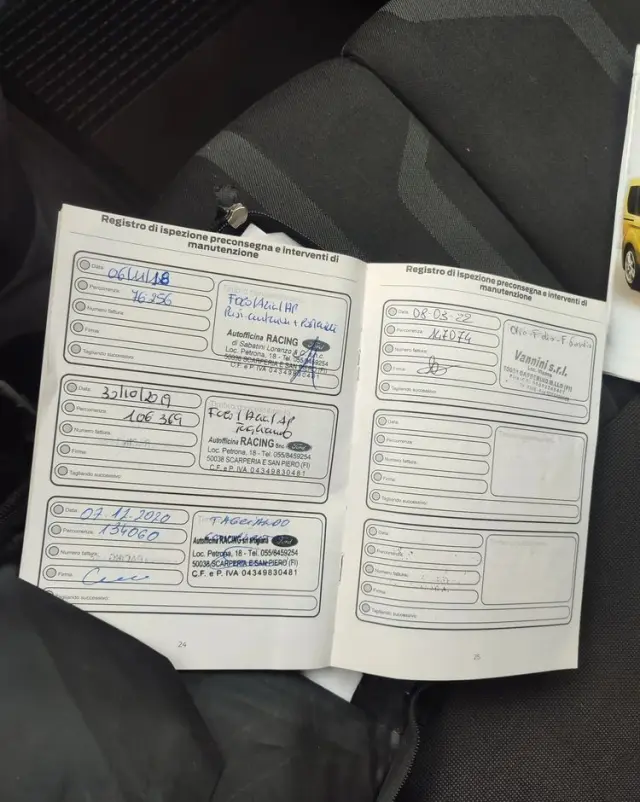 Registro di ispezione preconsegna e interventi di
manutenzione
Data: 06/11/18
Percorrenza: 76256
Numero fattura:
Firma:
Tagliando successivo:
Autofficina RACING Ford
di Sabatini Lorenzo
Loc. Petrona, 18 - Tel. 055/8459254
50038 SCARPERIA E SAN PIERO (FI)
C.F. e P. IVA 04349830481
Data: 30/10/2019
Percorrenza: 106369
Numero fattura:
Firma:
Tagliando successivo:
Tagliando
Autofficina RACING Snc Ford
Loc. Petrona, 18 - Tel. 055/8459254
50038 SCARPERIA E SAN PIERO (FI)
C.F. e P. IVA 04349830481
Data: 07.12.2020
Percorrenza: 134060
Numero fattura:
Firma:
Tagliando successivo:
TAGLIANDO
Autofficina RACING Ford
Loc. Petrona, 18 - Tel. 055/8459254
50038 SCARPERIA E SAN PIERO (FI)
C.F. e P. IVA 04349830481
24
Registro di ispezione preconsegna e interventi di
manutenzione
Data: 08-03-22
Percorrenza: 147074
Numero fattura:
Firma:
Tagliando successivo:
Vannini s.r.l.
Data:
Percorrenza:
Numero fattura:
Firma:
Tagliando successivo:
Data:
Percorrenza:
Numero fattura:
Firma:
Tagliando successivo:
25